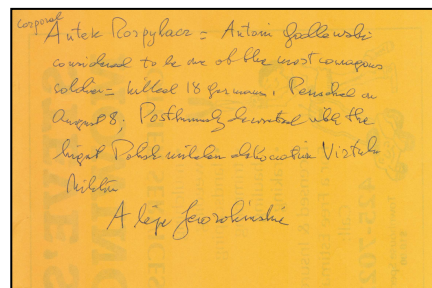 corporal
Antek Rozpylacz = Antoni Godlewski
considered to be one of the most couragous
soldier = killed 18 germans. Perished on
August 8; Posthumously decorated with the
higest Polish militar Virtuti
Militari
Aleje Jerozolimskie